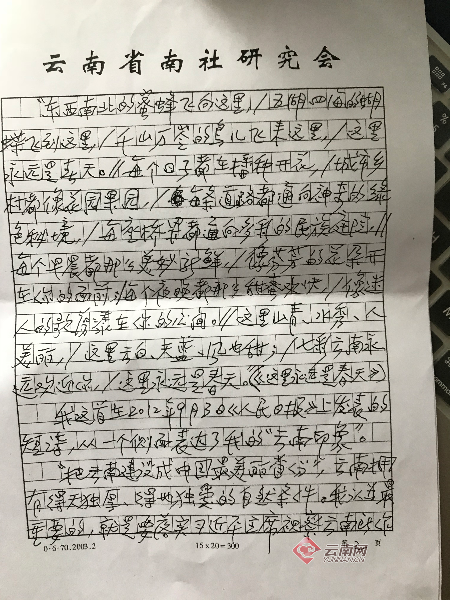 云南省南社研究会
“东西南北的蜜蜂飞向这里,/五湖四海的蝴
蝶飞到这里,/千山万壑的鸟儿飞来这里,/这里
永远是春天。//每个日子都在播种开花,/城市乡
村都像花园果园,/每条道路都通向神奇的绿
色秘境,/每座桥梁都通向多彩的民族庭院。//
每个早晨都那么美妙新鲜,/像芬芳的花朵开
在你的面前;/每个夜晚都那么甜蜜
人的 在你的 。//这里山青、水秀、人
美丽,/这里云白、天蓝、风也甜;/七彩云南永
远 ,/这里永远是春天。(《这里永远是春天》)
我这首在2012年9月3日《人民日报》上发表的
短诗,从一个侧面表达了我的“云南印象”。
“把云南建设成中国最美丽省份”,云南拥
有得天独厚、得地独美的自然条件。我认为最
重要的,就是要落实习近平主席视察云南时作
0-6-70.2003.2
15×20=300
第 页
云南网